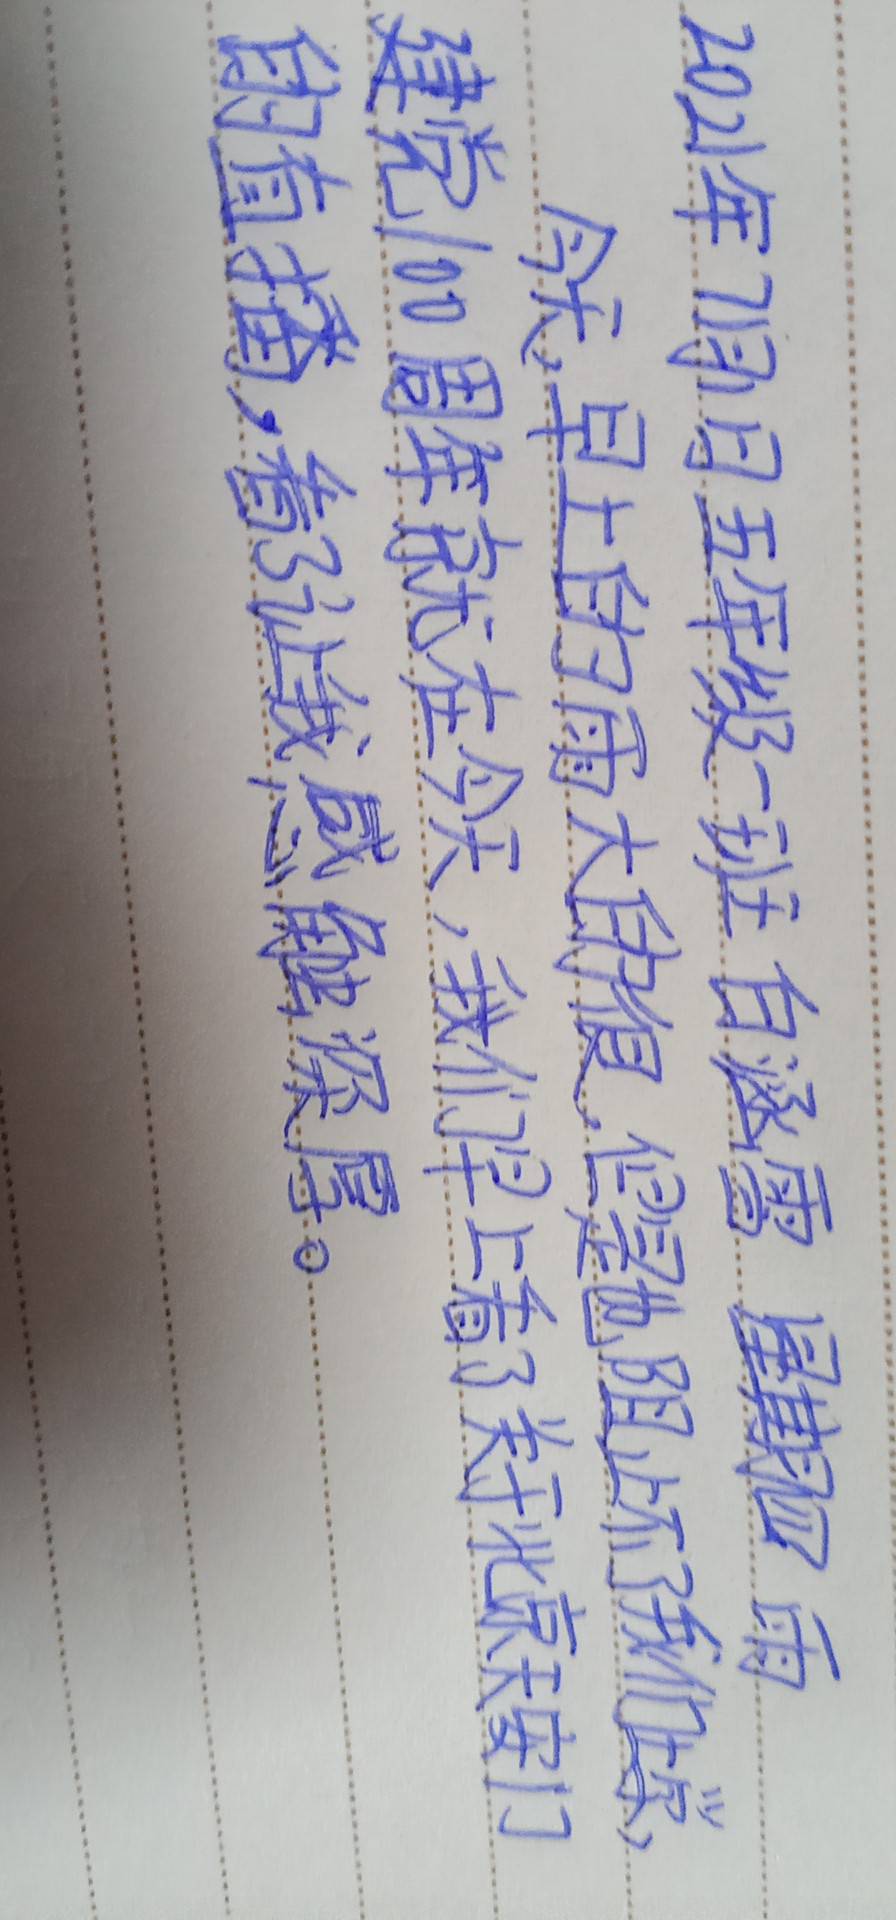 2021年7月1日五年级一班 白涵雪 星期四 雨
今天,早上的雨大的很,但是也阻止不了我们上学,
建党100周年就在今天,我们早上看了关于北京天安门
的直播,看了让我感触深厚。